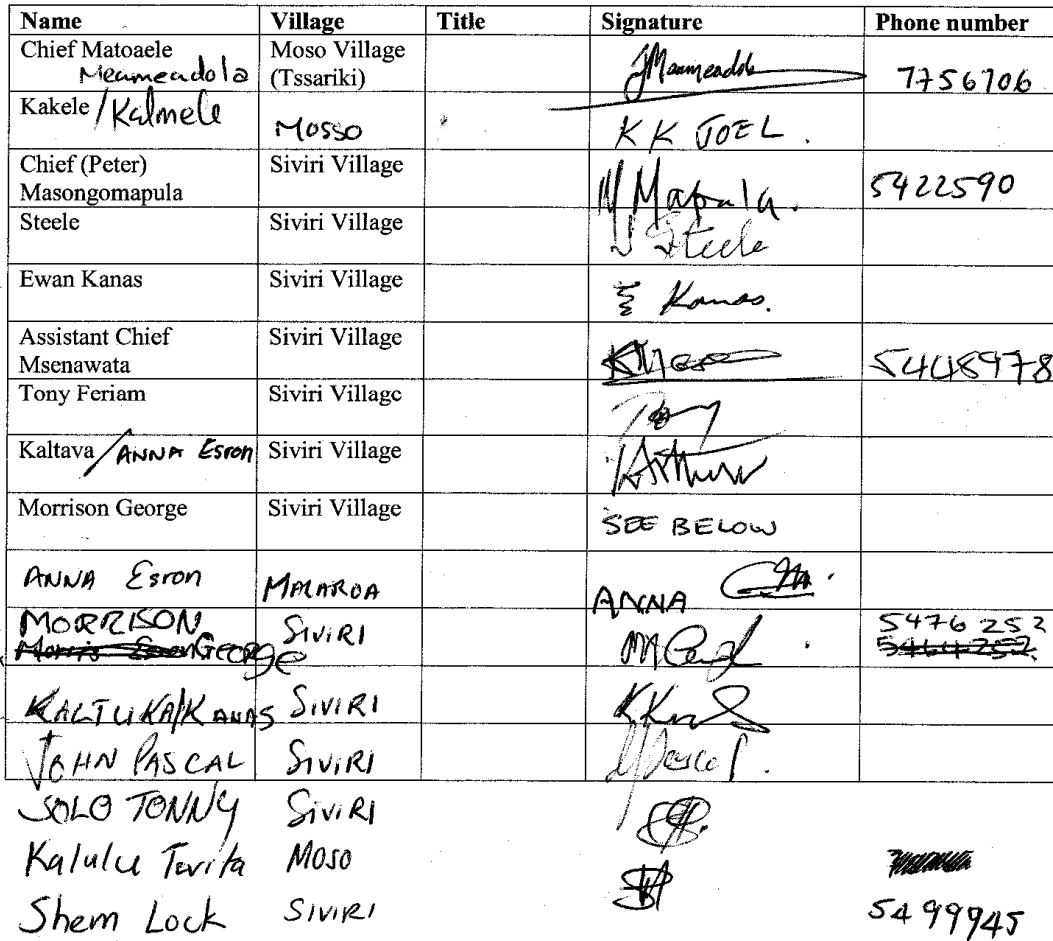 Name Village Title Signature Phone number
Chief Matoaele Moso Village
Meameadola (Tssariki) JMeameadola 7756706
Kakele /Kalmele
Mosso KK JOEL.
Chief (Peter) Siviri Village
Masongomapula M Mapula. 5422590
Steele Siviri Village Steele
Ewan Kanas Siviri Village
E Kanas.
Assistant Chief Siviri Village
Msenawata 5448978
Tony Feriam Siviri Village
Tony
Kaltava /ANNA Esron Siviri Village
KArthur
Morrison George Siviri Village
SEE BELOW
ANNA Esron MALAROA ANNA
MORRISON SIVIRI 5476 252
George
KALTUKA/KANAS SIVIRI
JOHN PASCAL SIVIRI J Pascal.
SOLO TONNY SIVIRI
Kalulu Tevita MOSO
Shem Lock SIVIRI 5499945